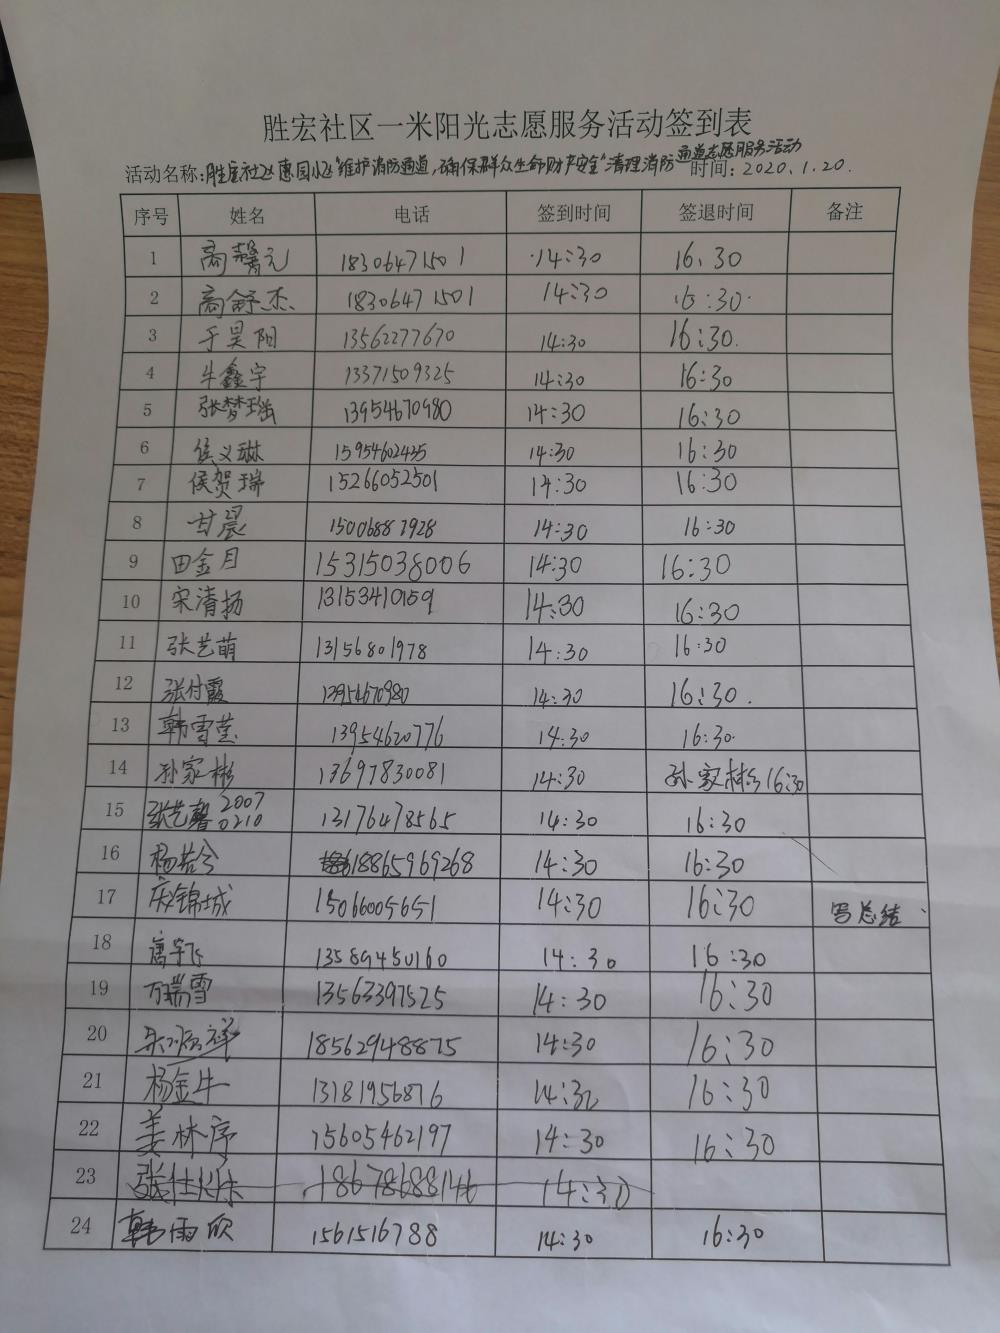 胜宏社区一米阳光志愿服务活动签到表
活动名称：胜宏社区惠园小区"维护消防通道，确保群众生命财产安全"清理消防通道志愿服务活动 时间：2020.1.20.
序号 姓名 电话 签到时间 签退时间 备注
1 高馨元 18306471501 14:30 16:30
2 高舒杰 18306471501 14:30 16:30
3 于昊阳 13562277670 14:30 16:30
4 牛鑫宇 13371509325 14:30 16:30
5 张梦瑶 13954670980 14:30 16:30
6 侯义琳 15954602435 14:30 16:30
7 侯贺瑞 15266052501 14:30 16:30
8 甘晨 15006881928 14:30 16:30
9 田金月 15315038006 14:30 16:30
10 宋清扬 13153410159 14:30 16:30
11 张艺萌 13156801978 14:30 16:30
12 张付霞 13954670980 14:30 16:30.
13 韩雪莹 13954620776 14:30 16:30
14 孙家彬 13697830081 14:30 孙家彬 16:30
15 张艺馨 2007 0210 13176478565 14:30 16:30
16 杨若兮 18865969268 14:30 16:30
17 锦城 15066005651 14:30 16:30 写总结
18 唐宇飞 13589450160 14:30 16:30
19 万瑞雪 13563397525 14:30 16:30
20 18562948875 14:30 16:30
21 杨金牛 13181956876 14:30 16:30
22 姜林序 15605462197 14:30 16:30
23 张仕 18678688146 14:30
24 韩雨欣 1561516788 14:30 16:30